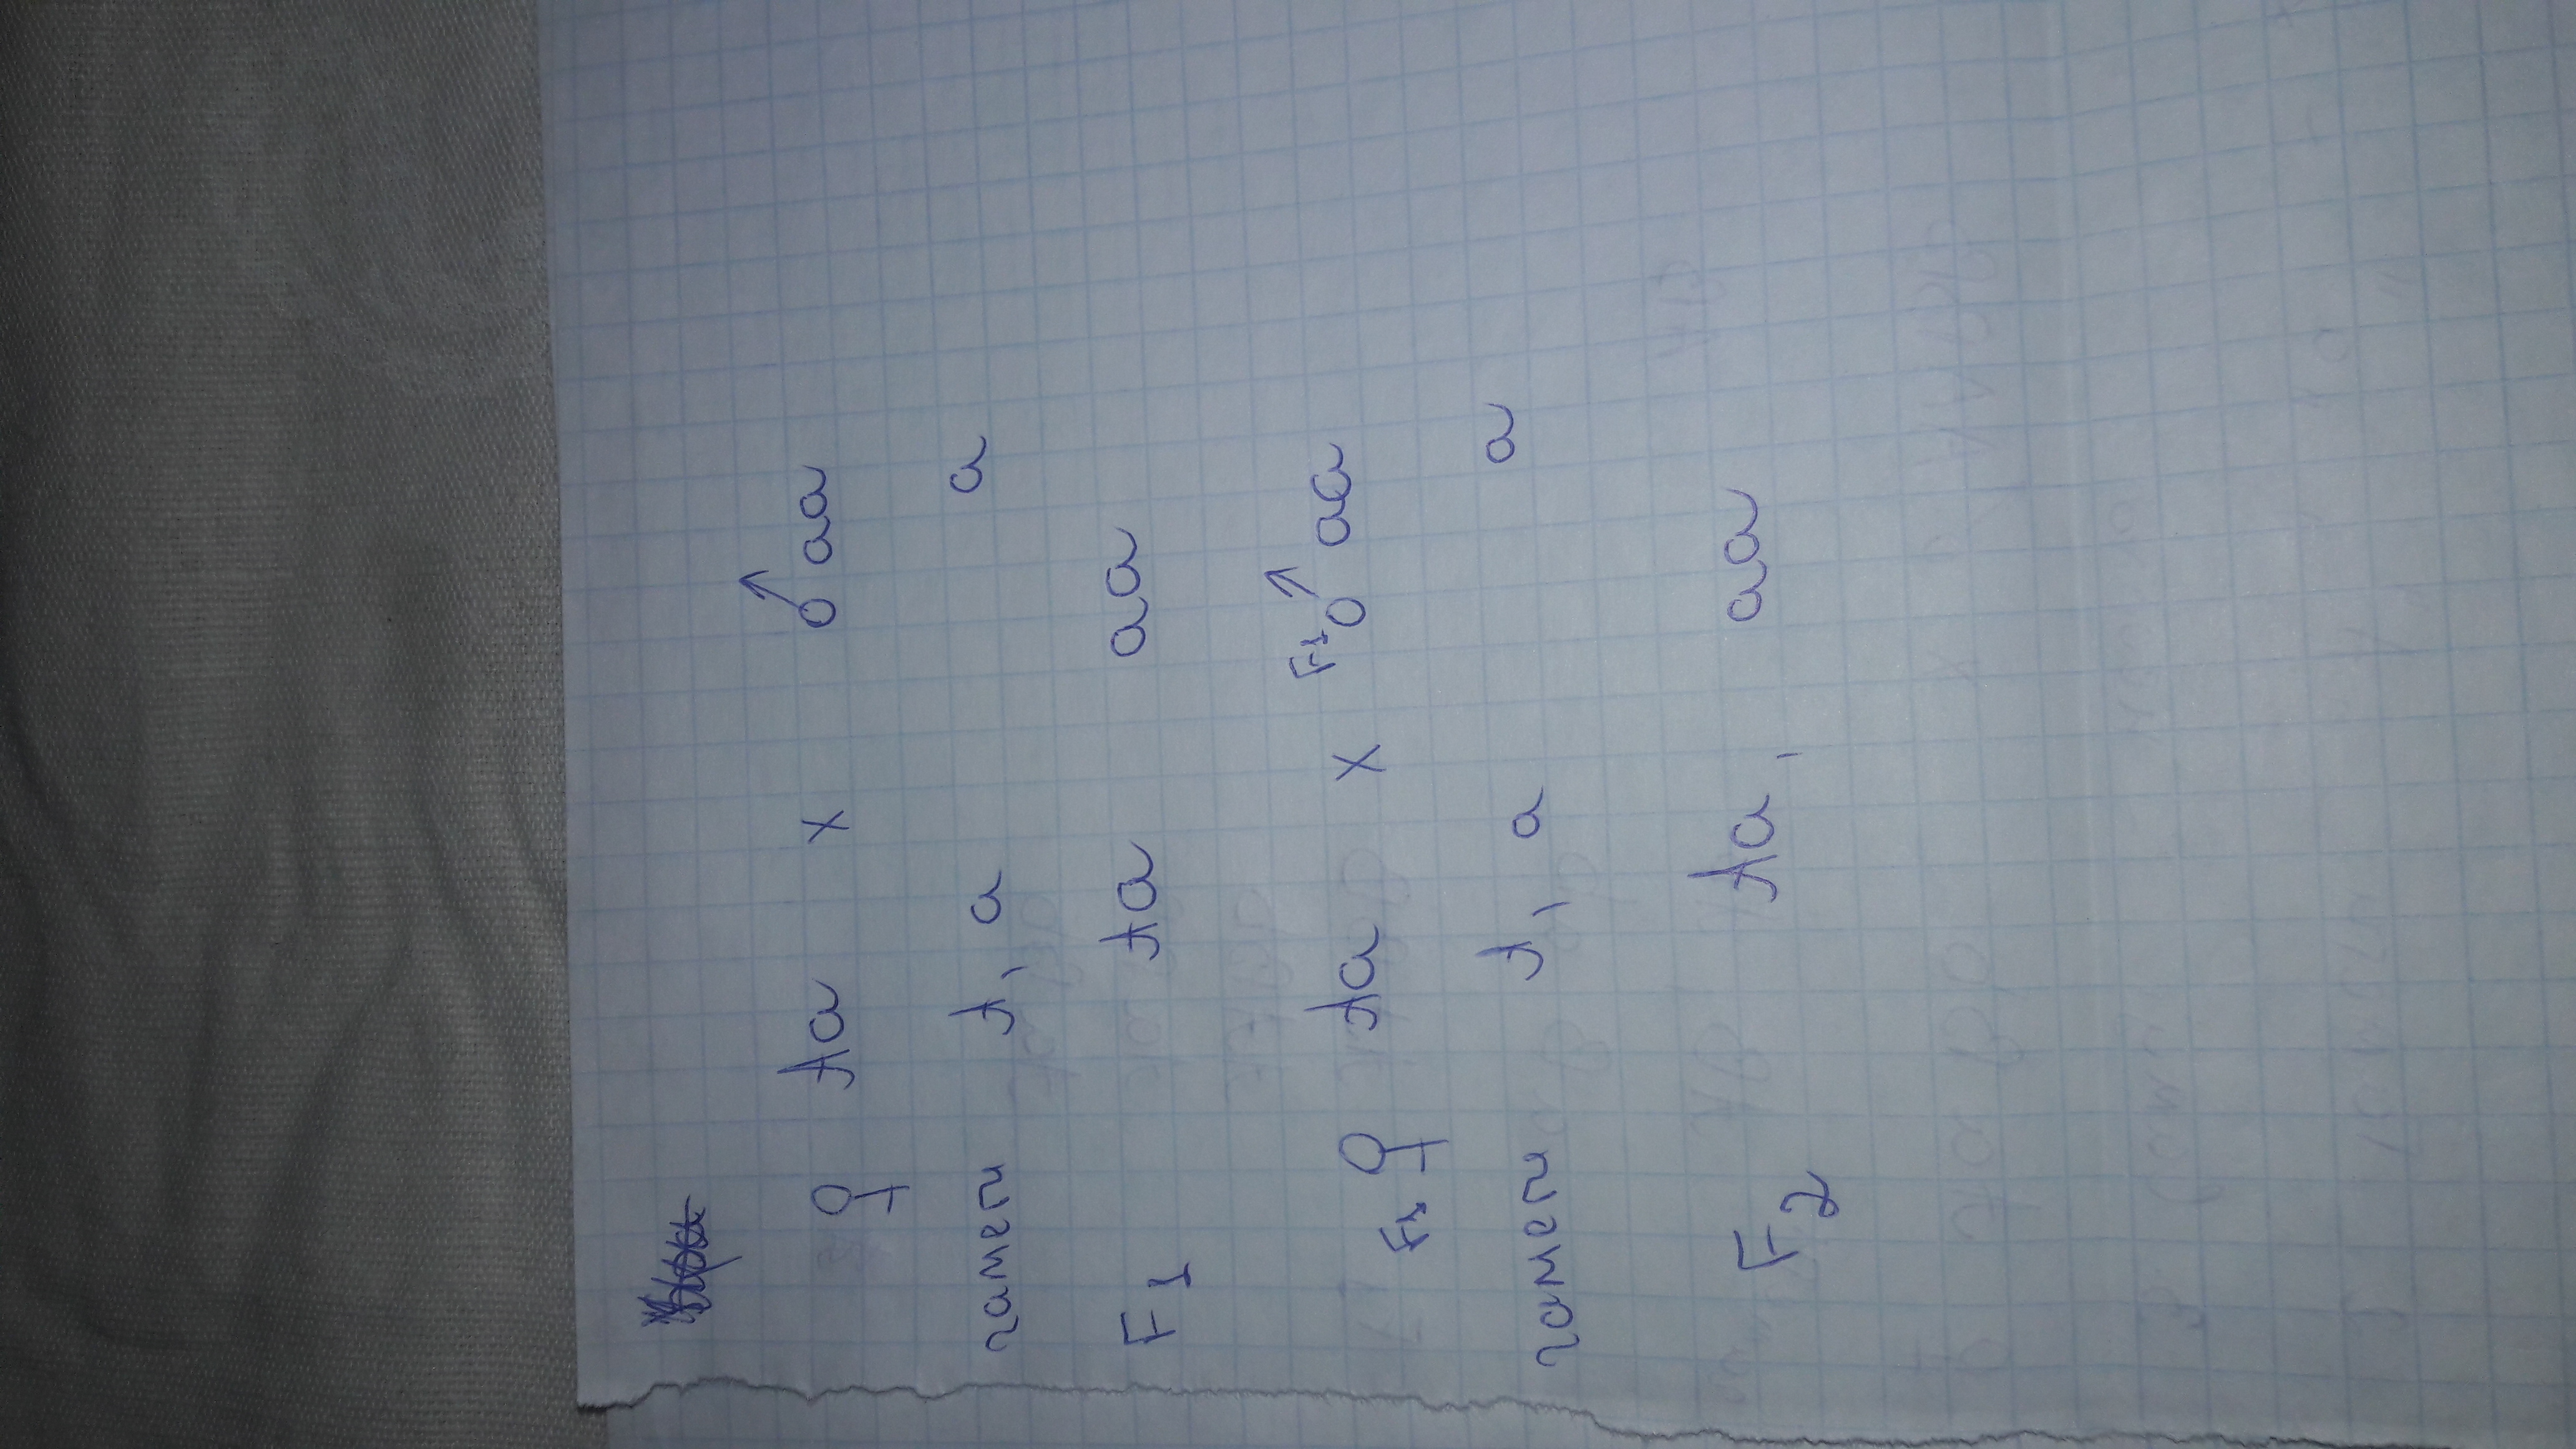 ♀ Aa x ♂ aa
гамети A, a a
F1 Aa aa
F1 ♀ Aa x F1 ♂ aa
гамети A, a a
F2 Aa, aa